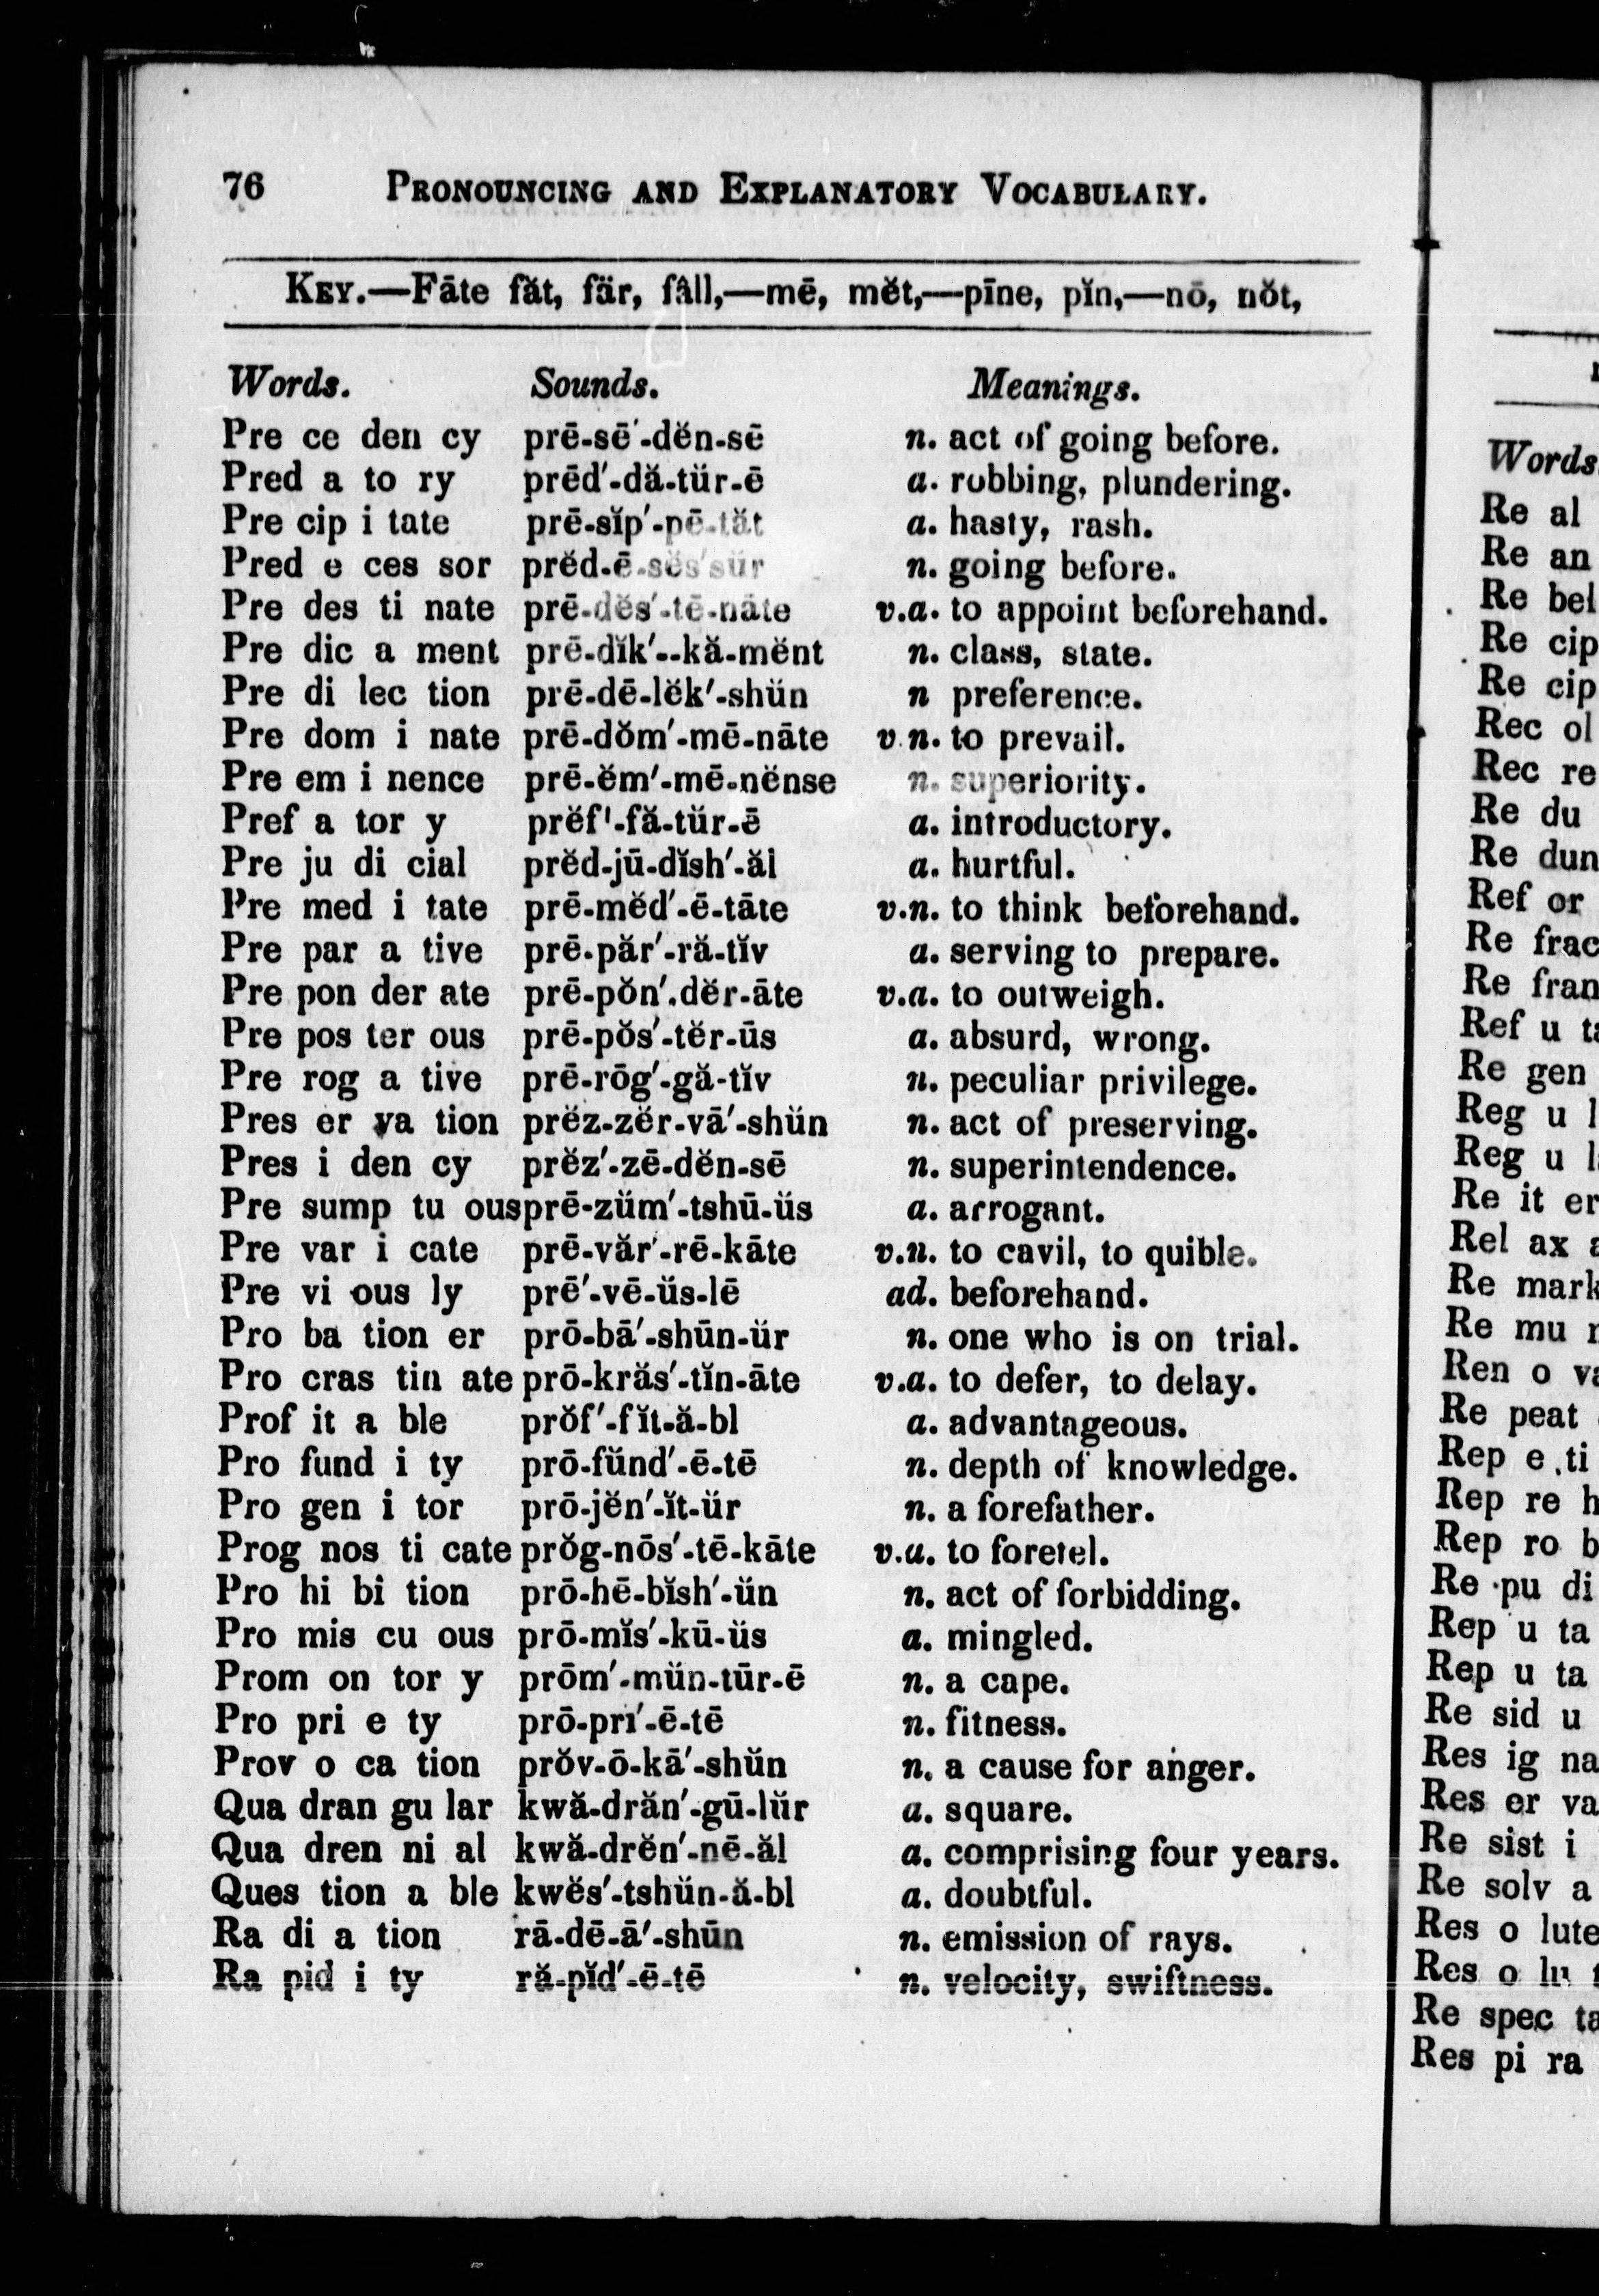 76 PRONOUNCING AND EXPLANATORY VOCABULARY.
KEY.—Fāte făt, fär, fâll,—mē, mĕt,—pīne, pĭn,—nō, nŏt,
Words. Sounds. Meanings.
Pre ce den cy prē-sē′-dĕn-sē n. act of going before.
Pred a to ry prēd′-dă-tŭr-ē a. robbing, plundering.
Pre cip i tate prē-sĭp′-pē-tăt a. hasty, rash.
Pred e ces sor prĕd-ē-sĕs′sŭr n. going before.
Pre des ti nate prē-dĕs′-tē-nāte v.a. to appoint beforehand.
Pre dic a ment prē-dĭk′--kă-mĕnt n. class, state.
Pre di lec tion prē-dē-lĕk′-shŭn n preference.
Pre dom i nate prē-dŏm′-mē-nāte v.n. to prevail.
Pre em i nence prē-ĕm′-mē-nĕnse n. superiority.
Pref a tor y prĕf′-fă-tŭr-ē a. introductory.
Pre ju di cial prĕd-jū-dĭsh′-ăl a. hurtful.
Pre med i tate prē-mĕd′-ē-tāte v.n. to think beforehand.
Pre par a tive prē-păr′-ră-tĭv a. serving to prepare.
Pre pon der ate prē-pŏn′.dĕr-āte v.a. to outweigh.
Pre pos ter ous prē-pŏs′-tĕr-ūs a. absurd, wrong.
Pre rog a tive prē-rōg′-gă-tĭv n. peculiar privilege.
Pres er va tion prĕz-zĕr-vā′-shŭn n. act of preserving.
Pres i den cy prĕz′-zē-dĕn-sē n. superintendence.
Pre sump tu ous prē-zŭm′-tshū-ŭs a. arrogant.
Pre var i cate prē-văr′-rē-kāte v.n. to cavil, to quible.
Pre vi ous ly prē′-vē-ŭs-lē ad. beforehand.
Pro ba tion er prō-bā′-shūn-ŭr n. one who is on trial.
Pro cras tin ate prō-krăs′-tĭn-āte v.a. to defer, to delay.
Prof it a ble prŏf′-fĭt-ă-bl a. advantageous.
Pro fund i ty prō-fŭnd′-ē-tē n. depth of knowledge.
Pro gen i tor prō-jĕn′-ĭt-ŭr n. a forefather.
Prog nos ti cate prŏg-nōs′-tē-kāte v.a. to foretel.
Pro hi bi tion prō-hē-bĭsh′-ŭn n. act of forbidding.
Pro mis cu ous prō-mĭs′-kū-ŭs a. mingled.
Prom on tor y prōm′-mŭn-tūr-ē n. a cape.
Pro pri e ty prō-prī′-ē-tē n. fitness.
Prov o ca tion prŏv-ō-kā′-shŭn n. a cause for anger.
Qua dran gu lar kwă-drăn′-gū-lŭr a. square.
Qua dren ni al kwă-drĕn′-nē-ăl a. comprising four years.
Ques tion a ble kwĕs′-tshŭn-ă-bl a. doubtful.
Ra di a tion rā-dē-ā′-shūn n. emission of rays.
Ra pid i ty ră-pĭd′-ē-tē n. velocity, swiftness.
Words
Re al
Re an
Re bel
Re cip
Re cip
Rec ol
Rec re
Re du
Re dun
Ref or
Re frac
Re fran
Ref u
Re gen
Reg u
Reg u
Re it er
Rel ax
Re mark
Re mu
Ren o
Re peat
Rep e ti
Rep re
Rep ro
Re pu di
Rep u ta
Rep u ta
Re sid u
Res ig na
Res er va
Re sist i
Re solv a
Res o lute
Res o lu
Re spec
Res pi ra